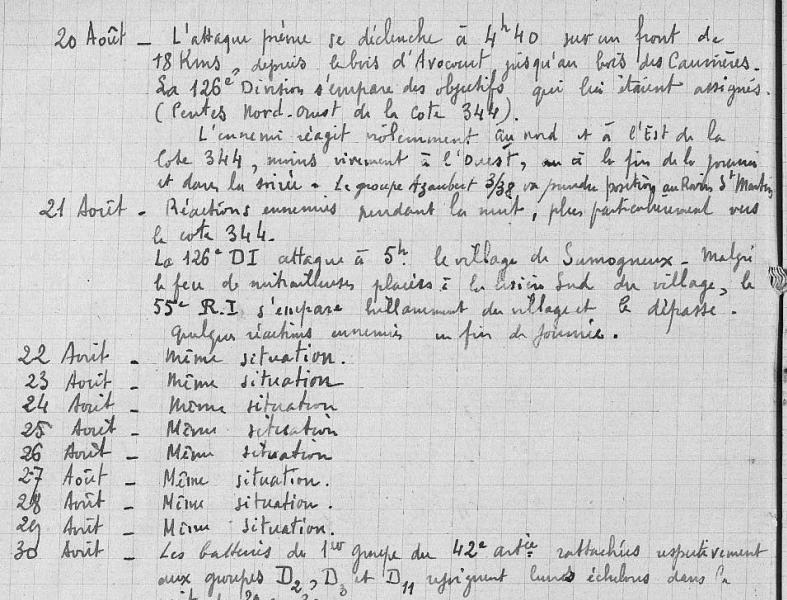 20 Août - L'attaque prévue se déclenche à 4h40 sur un front de
18 Kms, depuis le bois d'Avocourt jusqu'au bois des Caurières.
La 126e Division s'empare des objectifs qui lui étaient assignés.
(Pentes Nord-ouest de la cote 344).
L'ennemi réagit violemment au nord et à l'Est de la
Cote 344, moins vivement à l'Ouest, à la fin de la journée
et dans la soirée - Le groupe Azambert 3/38 va prendre position au Ravin St Martin
21 Août - Réactions ennemies pendant la nuit, plus particulièrement vers
la cote 344.
La 126e DI attaque à 5h. le village de Samogneux - Malgré
le feu de mitrailleuses placées à la lisière Sud du village, le
55e R.I s'empare brillamment du village et le dépasse.
Quelques réactions ennemies en fin de journée.
22 Août - Même situation.
23 Août - Même situation
24 Août - Même situation
25 Août - Même situation
26 Août - Même situation
27 Août - Même situation.
28 Août - Même situation.
29 Août - Même situation.
30 Août - Les batteries du 1er groupe du 42e artie rattachées respectivement
aux groupes D2, D3 et D11 rejoignent leurs échelons dans la